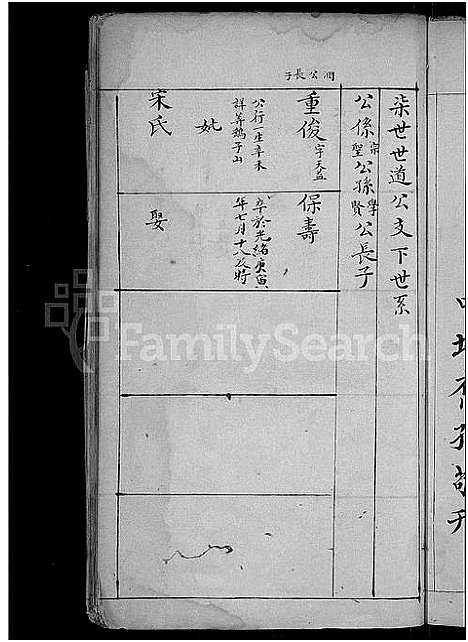 柒世世道公支下世系
公係宗聖公孫學賢公長子
潤公長子
重俊字天益
公行一生辛未
詳葬鵝子山
妣
宋氏
保壽
卒於光緒庚寅
年七月十八辰時
娶
FamilySearch